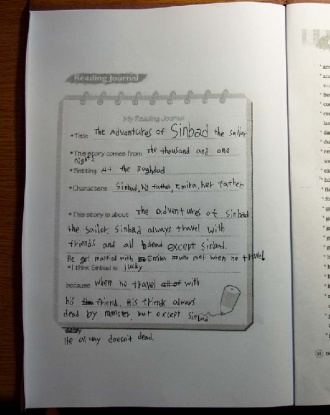 Reading Journal
My Reading Journal
•Title The adventures of Sinbad the sailor
•This story comes from the thousand and one
nights
•Setting at the Baghdad
•Characters Sinbad, his father, Emira, her father
•This story is about The adventures of Sinbad
the sailor. Sinbad always travel with
friends and all dead except Sinbad.
He get married with Emira and when he travel
•I think Sinbad is lucky
because when he travel with
his friend, his friends always
dead by monster, but except Sinbad
He always doesn't dead.